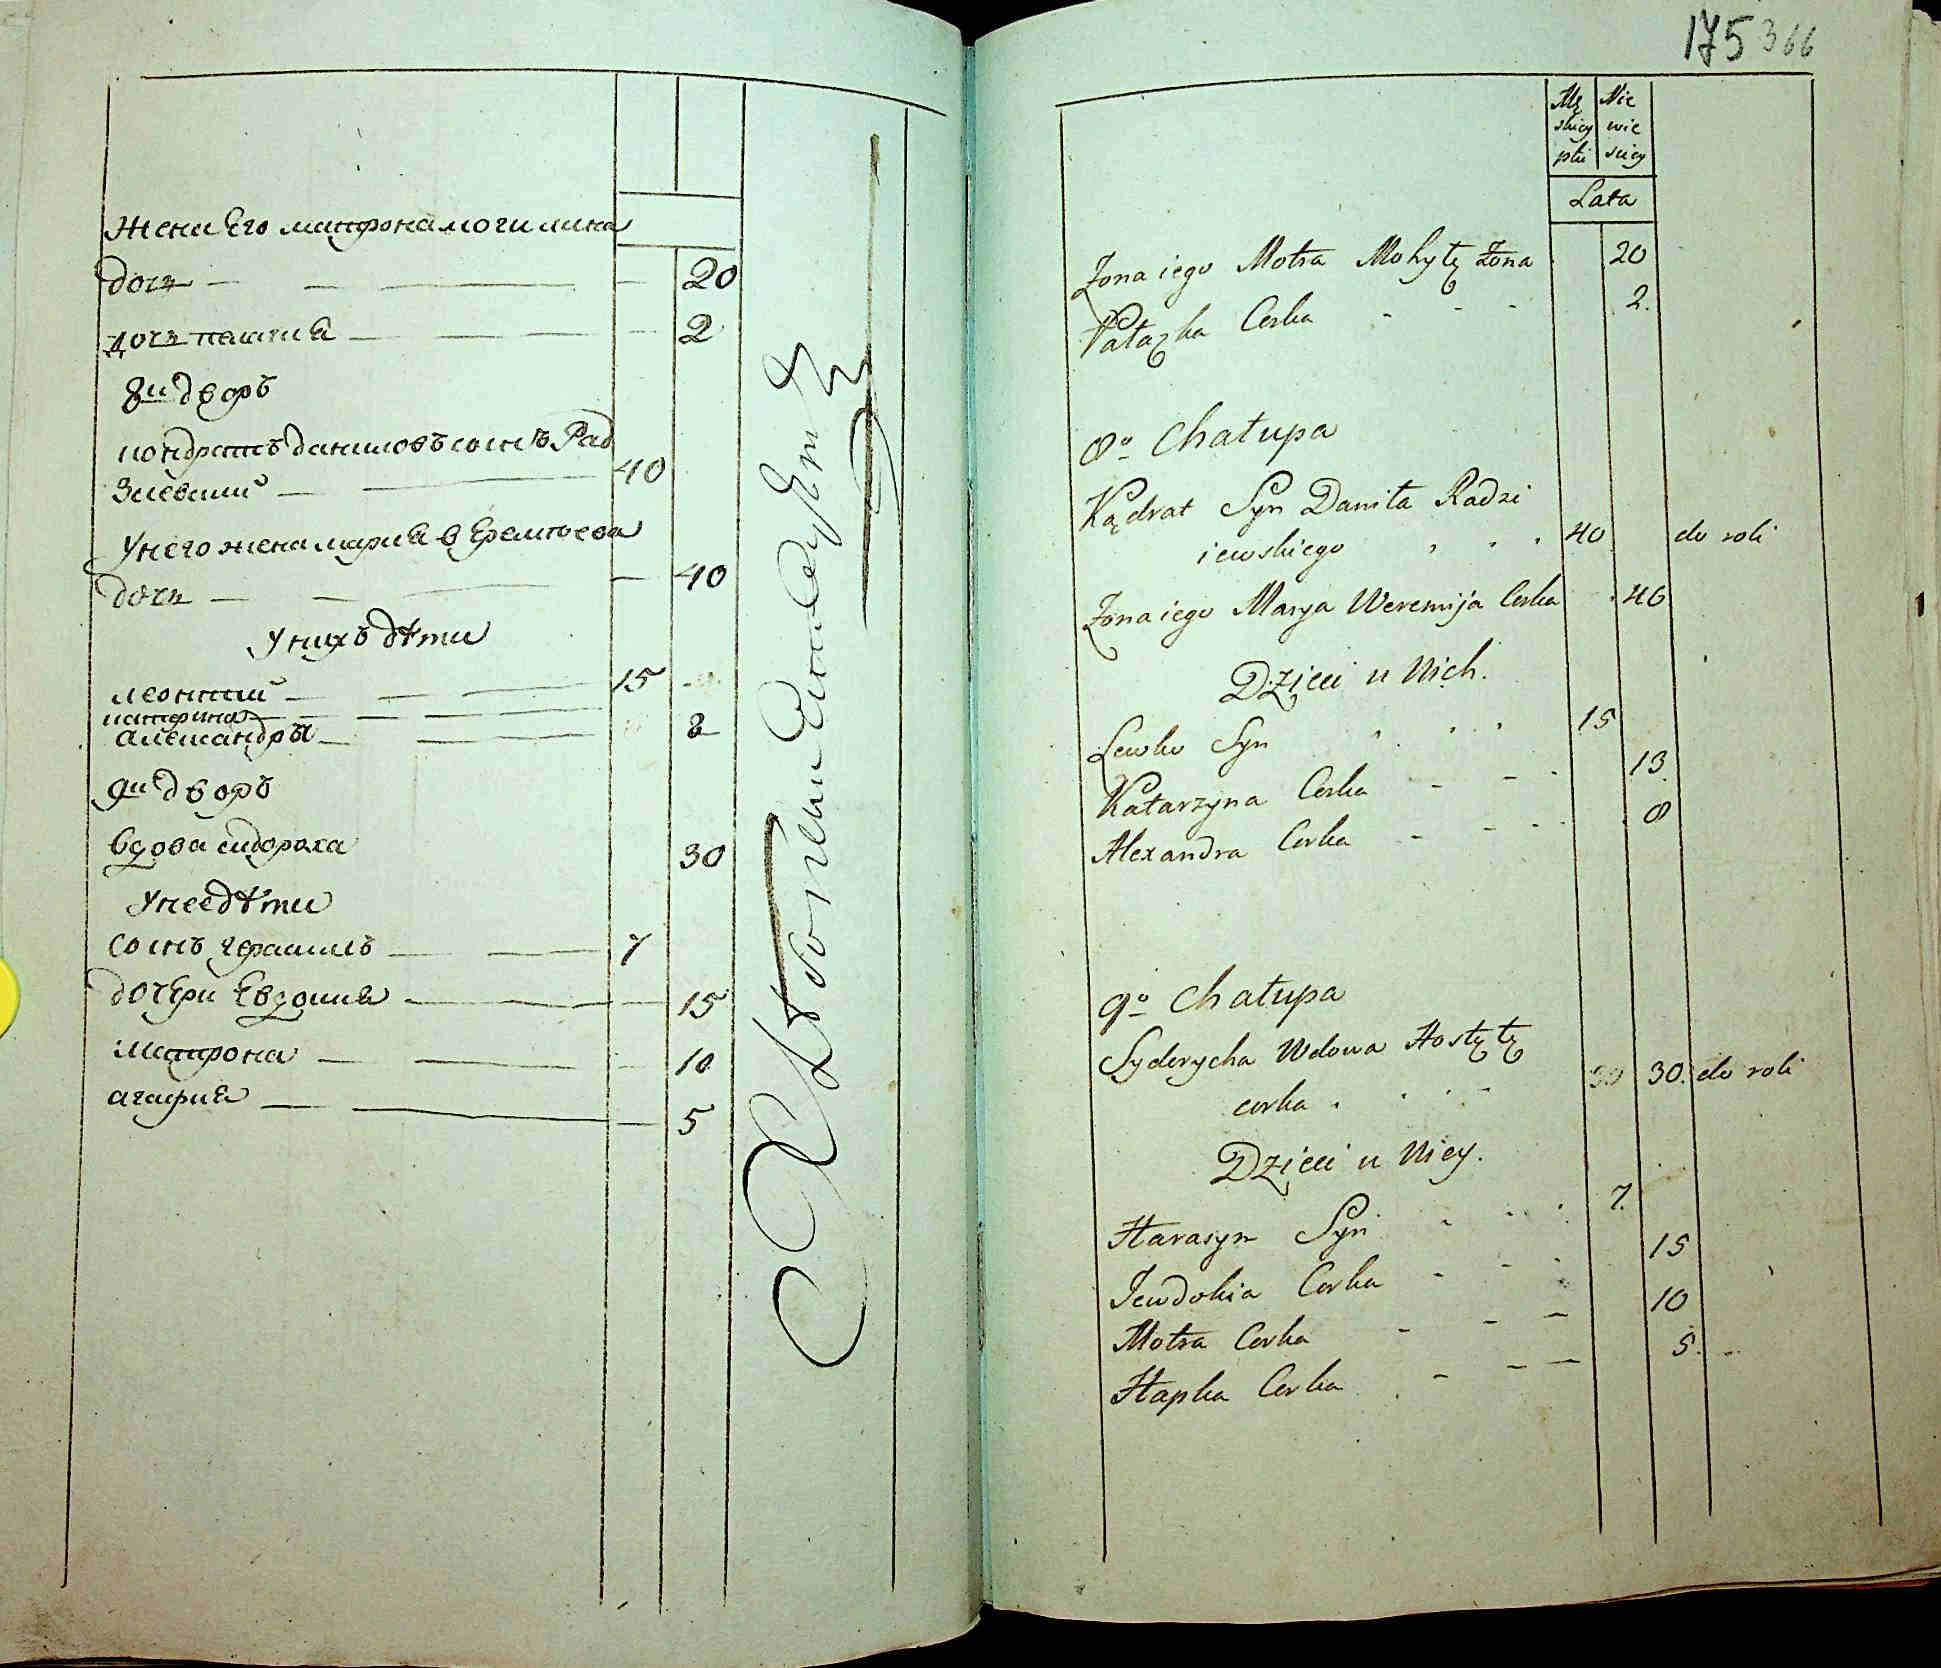 жена Его матрона могилина
дочь 20
дочь пелагия 2
8й дворъ
кондратъ даниловъ сынъ Рад
зиевский 40
У него жена мария в Еремиева
дочь 40
У нихъ дѣти
леонтий 15
катерина
александра 8
9й дворъ
вдова сидориха 30
У нее дѣти
сынъ герасимъ 7
дочери Евдокия 15
матрона 10
агафия 5
175 366
Mę Nie
skiey wie
płci sciey
Lata
Zona iego Motra Mohyty Zona 20
Pałazka Corka 2.
8o Chałupa
Kądrat Syn Daniła Radzi
iewskiego 40 do roli
Zona iego Marya Weremija Corka 40
Dzieci u Nich.
Lewko Syn 15
Katarzyna Corka 13
Alexandra Corka 8
9o Chałupa
Syderycha Wdowa
corka 30. do roli
Dzieci u Niey.
Harasym Syn 7.
Jewdokia Corka 15
Motra Corka 10
Hapka Corka 5.